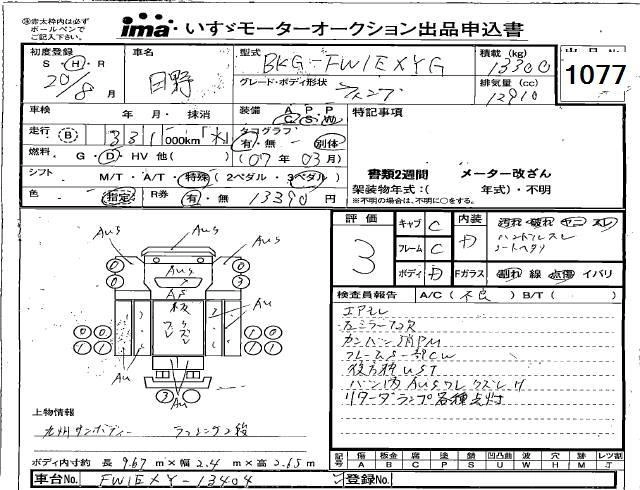 ㊟赤太枠内は必ず
ボールペンで
ご記入下さい。
ima いすゞモーターオークション出品申込書
初度登録
S H R
20/8月
車名
日野
型式
BKG-FW1EXYG
グレード・ボディ形状
積載 (kg)
13300
排気量 (cc)
12910
1077
車検 年 月・ 抹消
装備 A P P C S W
特記事項
走行 B 331 000km
タコグラフ 有・無 別体
燃料 G・D・HV 他( )
(07年03月)
書類2週間 メーター改ざん
架装物年式:( 年式)・不明
※不明の場合は、不明に○をする。
シフト M/T・A/T・特殊 (2ペダル・3ペダル)
色 指定 R券 有・無 13390円
評価
3
キャブ C
フレーム C
ボディ D
内装 D
汚れ 破れ ヤニ スレ
ハンドルスレ
シートヘタリ
Fガラス 割れ 線 点傷 イバリ
検査員報告 A/C (不良) B/T ( )
エアモレ
左ミラー欠
カンバン消PM
フレームS一部CW
後方枠UST
バン内AUSワレクズレサ
リターダランプ各種点灯
AuS
AuS
AuS
AuS
AS
板
Au
Au
Au
Au
上物情報
九州サンボディー ラッシング2段
ボディ内寸約 長 9.67 m×幅 2.4 m×高 2.65 m
記号 傷 板金 腐 塗 錆 凹凸曲 波 穴 跡 レツ割
A B C P S U W H M J
車台No. FW1EXY-13404
登録No.